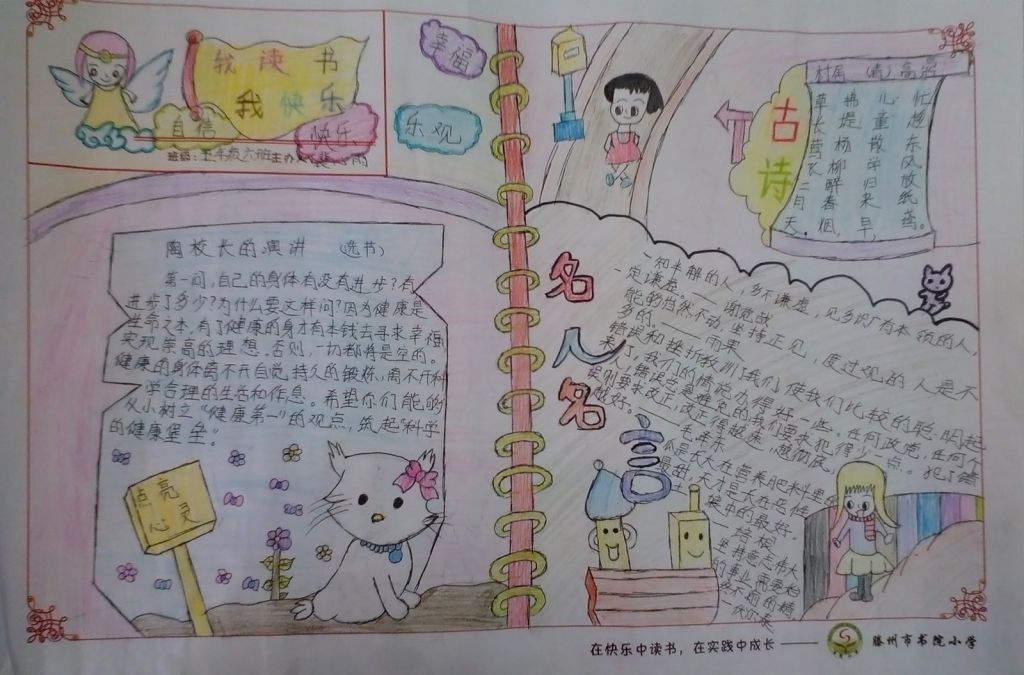 我读书
我快乐
自信
快乐
幸福
乐观
班级：五年级六班
陶校长的演讲 （选书）
第一问，自己的身体有没有进步？有
进步了多少？为什么要这样问？因为健康是
生命之本，有了健康的身才有本钱去寻求幸福
实现崇高的理想。否则，一切都将是空的。
健康的身体离不开自觉、持久的锻炼，离不开科
学合理的生活和作息。希望你们能够
从小树立“健康第一”的观点，筑起“科学
的健康堡垒。”
点亮
心灵
古诗
村居 （清）高鼎
草长莺飞二月天，
拂堤杨柳醉春烟。
儿童散学归来早，
忙趁东风放纸鸢。
名人名言
一知半解的人，多不谦虚，见多识广有本领的人，
一定谦虚。——谢觉哉
能的当然不动，坚持正见，度过难的人是不
多的。——雨果
错误和挫折教训了我们，使我们比较的聪明起
来了，我们的情况办得好一些。任何政党，任何个
人，错误总是难免的，我们要求犯得少一点。犯了错
误则要求改正，改正得越早，越彻底，
越好。——毛泽东
最壮，天才是大在恶性
坚持意志伟大
的事业需要始
在快乐中读书，在实践中成长——
滕州市书院小学